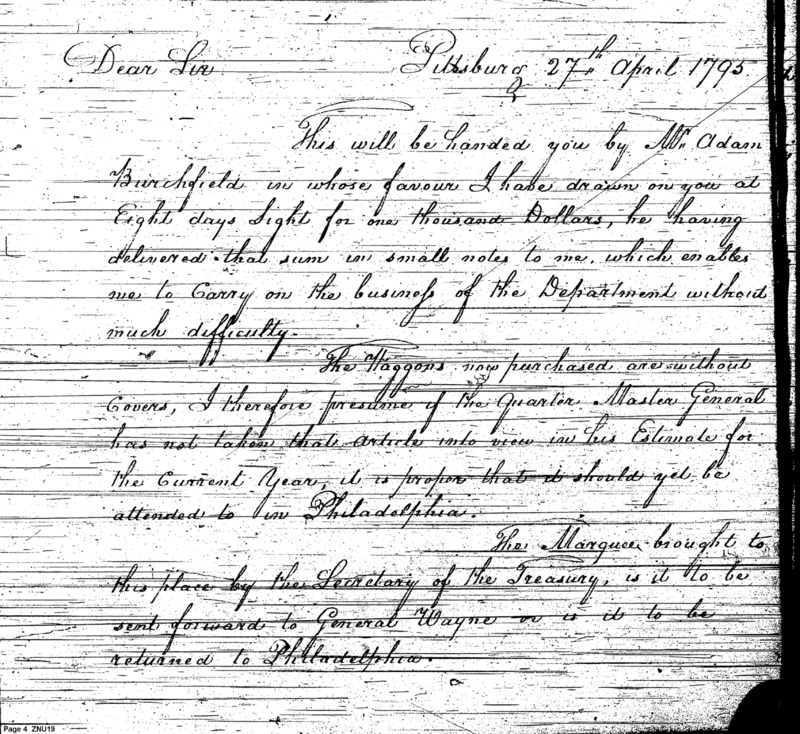 Dear Sir Pittsburg 27th April 1795
This will be handed you by Mr. Adam
Burchfield in whose favour I have drawn on you at
Eight days Sight for one thousand Dollars, he having
delivered that sum in small notes to me, which enables
me to Carry on the business of the Department without
much difficulty.
The Waggons now purchased are without
Covers, I therefore presume if the Quarter Master General
has not taken that article into view in his Estimate for
the Current Year, it is proper that it should yet be
attended to in Philadelphia.
The Marquee brought to
this place by the Secretary of the Treasury, is it to be
sent forward to General Wayne or is it to be
returned to Philadelphia.
Page 4 ZNU19